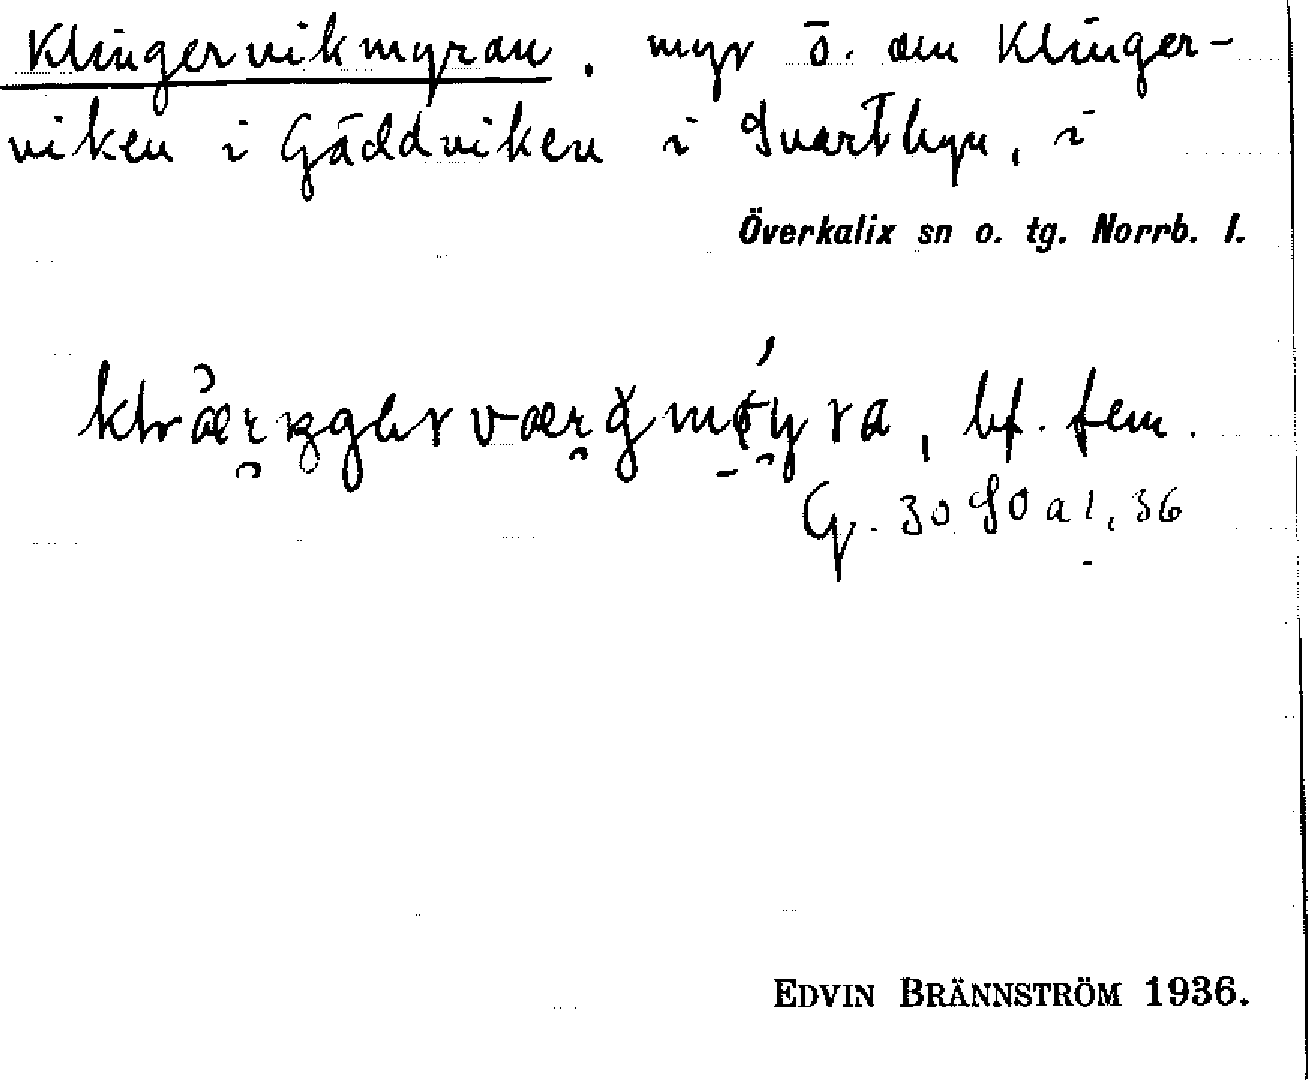 Klingervikmyran. myr ö. om Klinger-
viken i Gäddviken i Svartbyn, i
Överkalix sn o. tg. Norrb. l.
bf. fem.
G. 30 SO a 1, 36
EDVIN BRÄNNSTRÖM 1936.